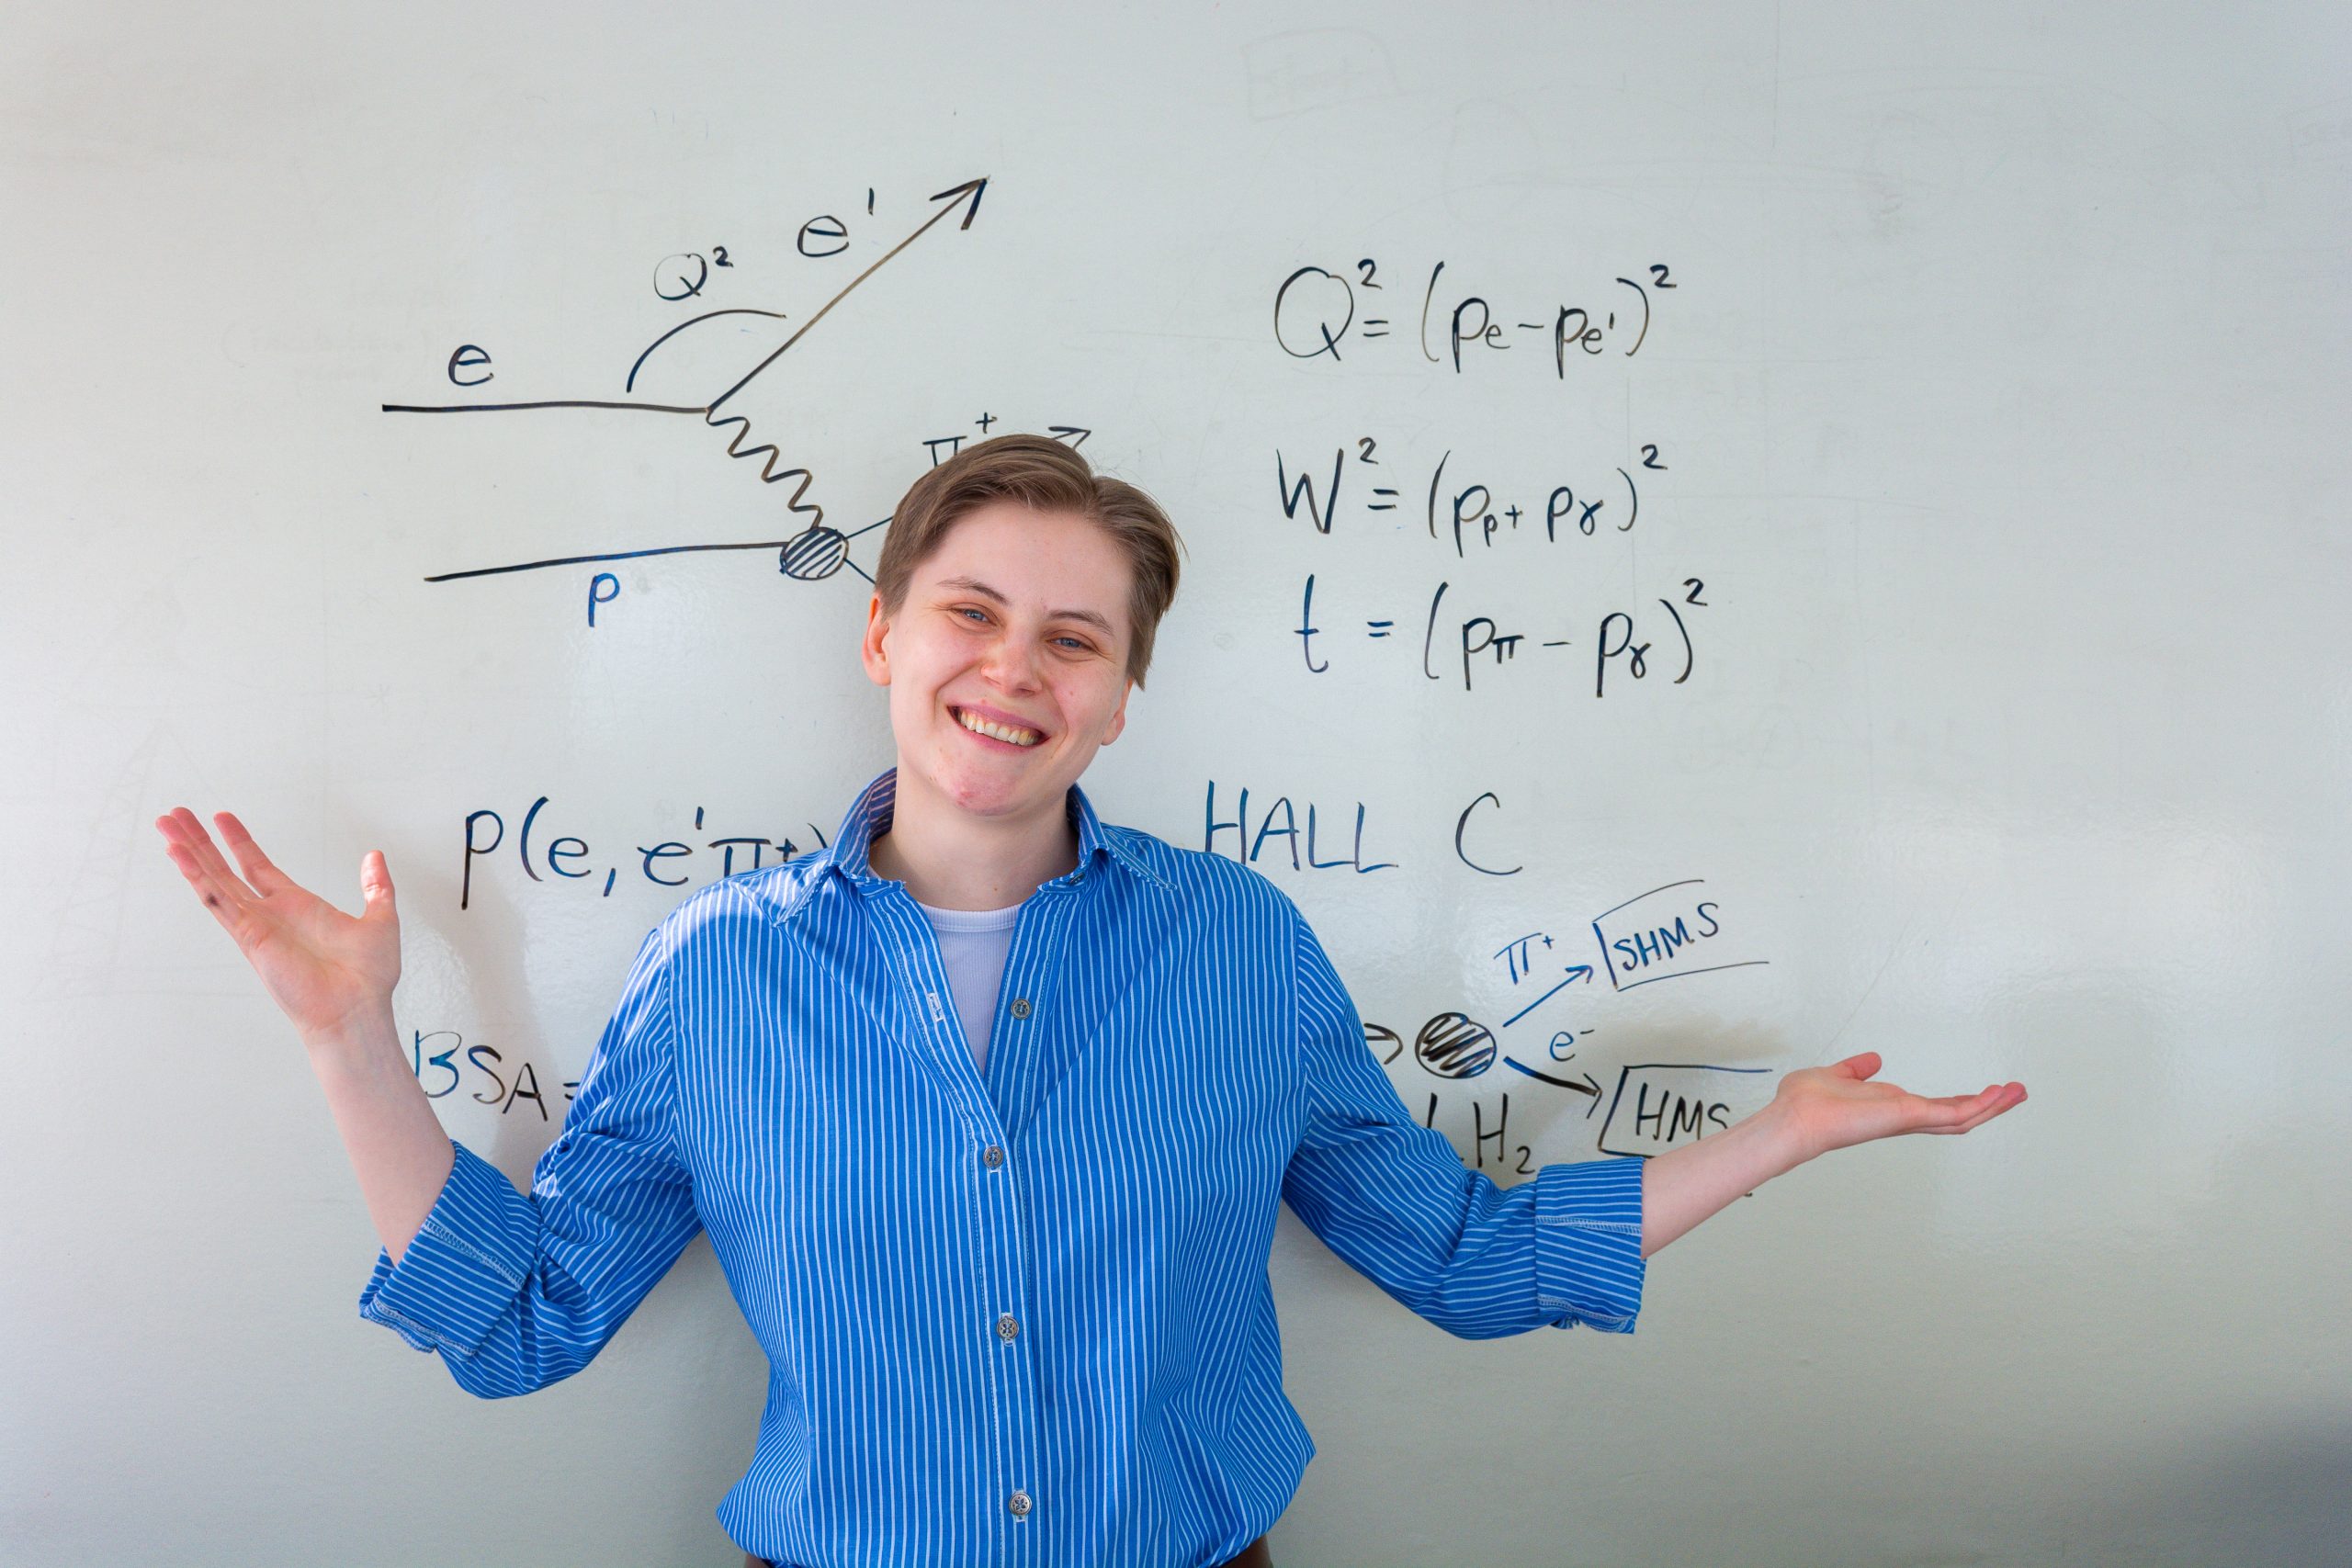 e
Q²
e'
π⁺
p
Q² = (pe - pe')²
W² = (pp + pγ)²
t = (pπ - pγ)²
p(e, e'π⁺)
HALL C
BSA =
π⁺
SHMS
e⁻
HMS
LH₂